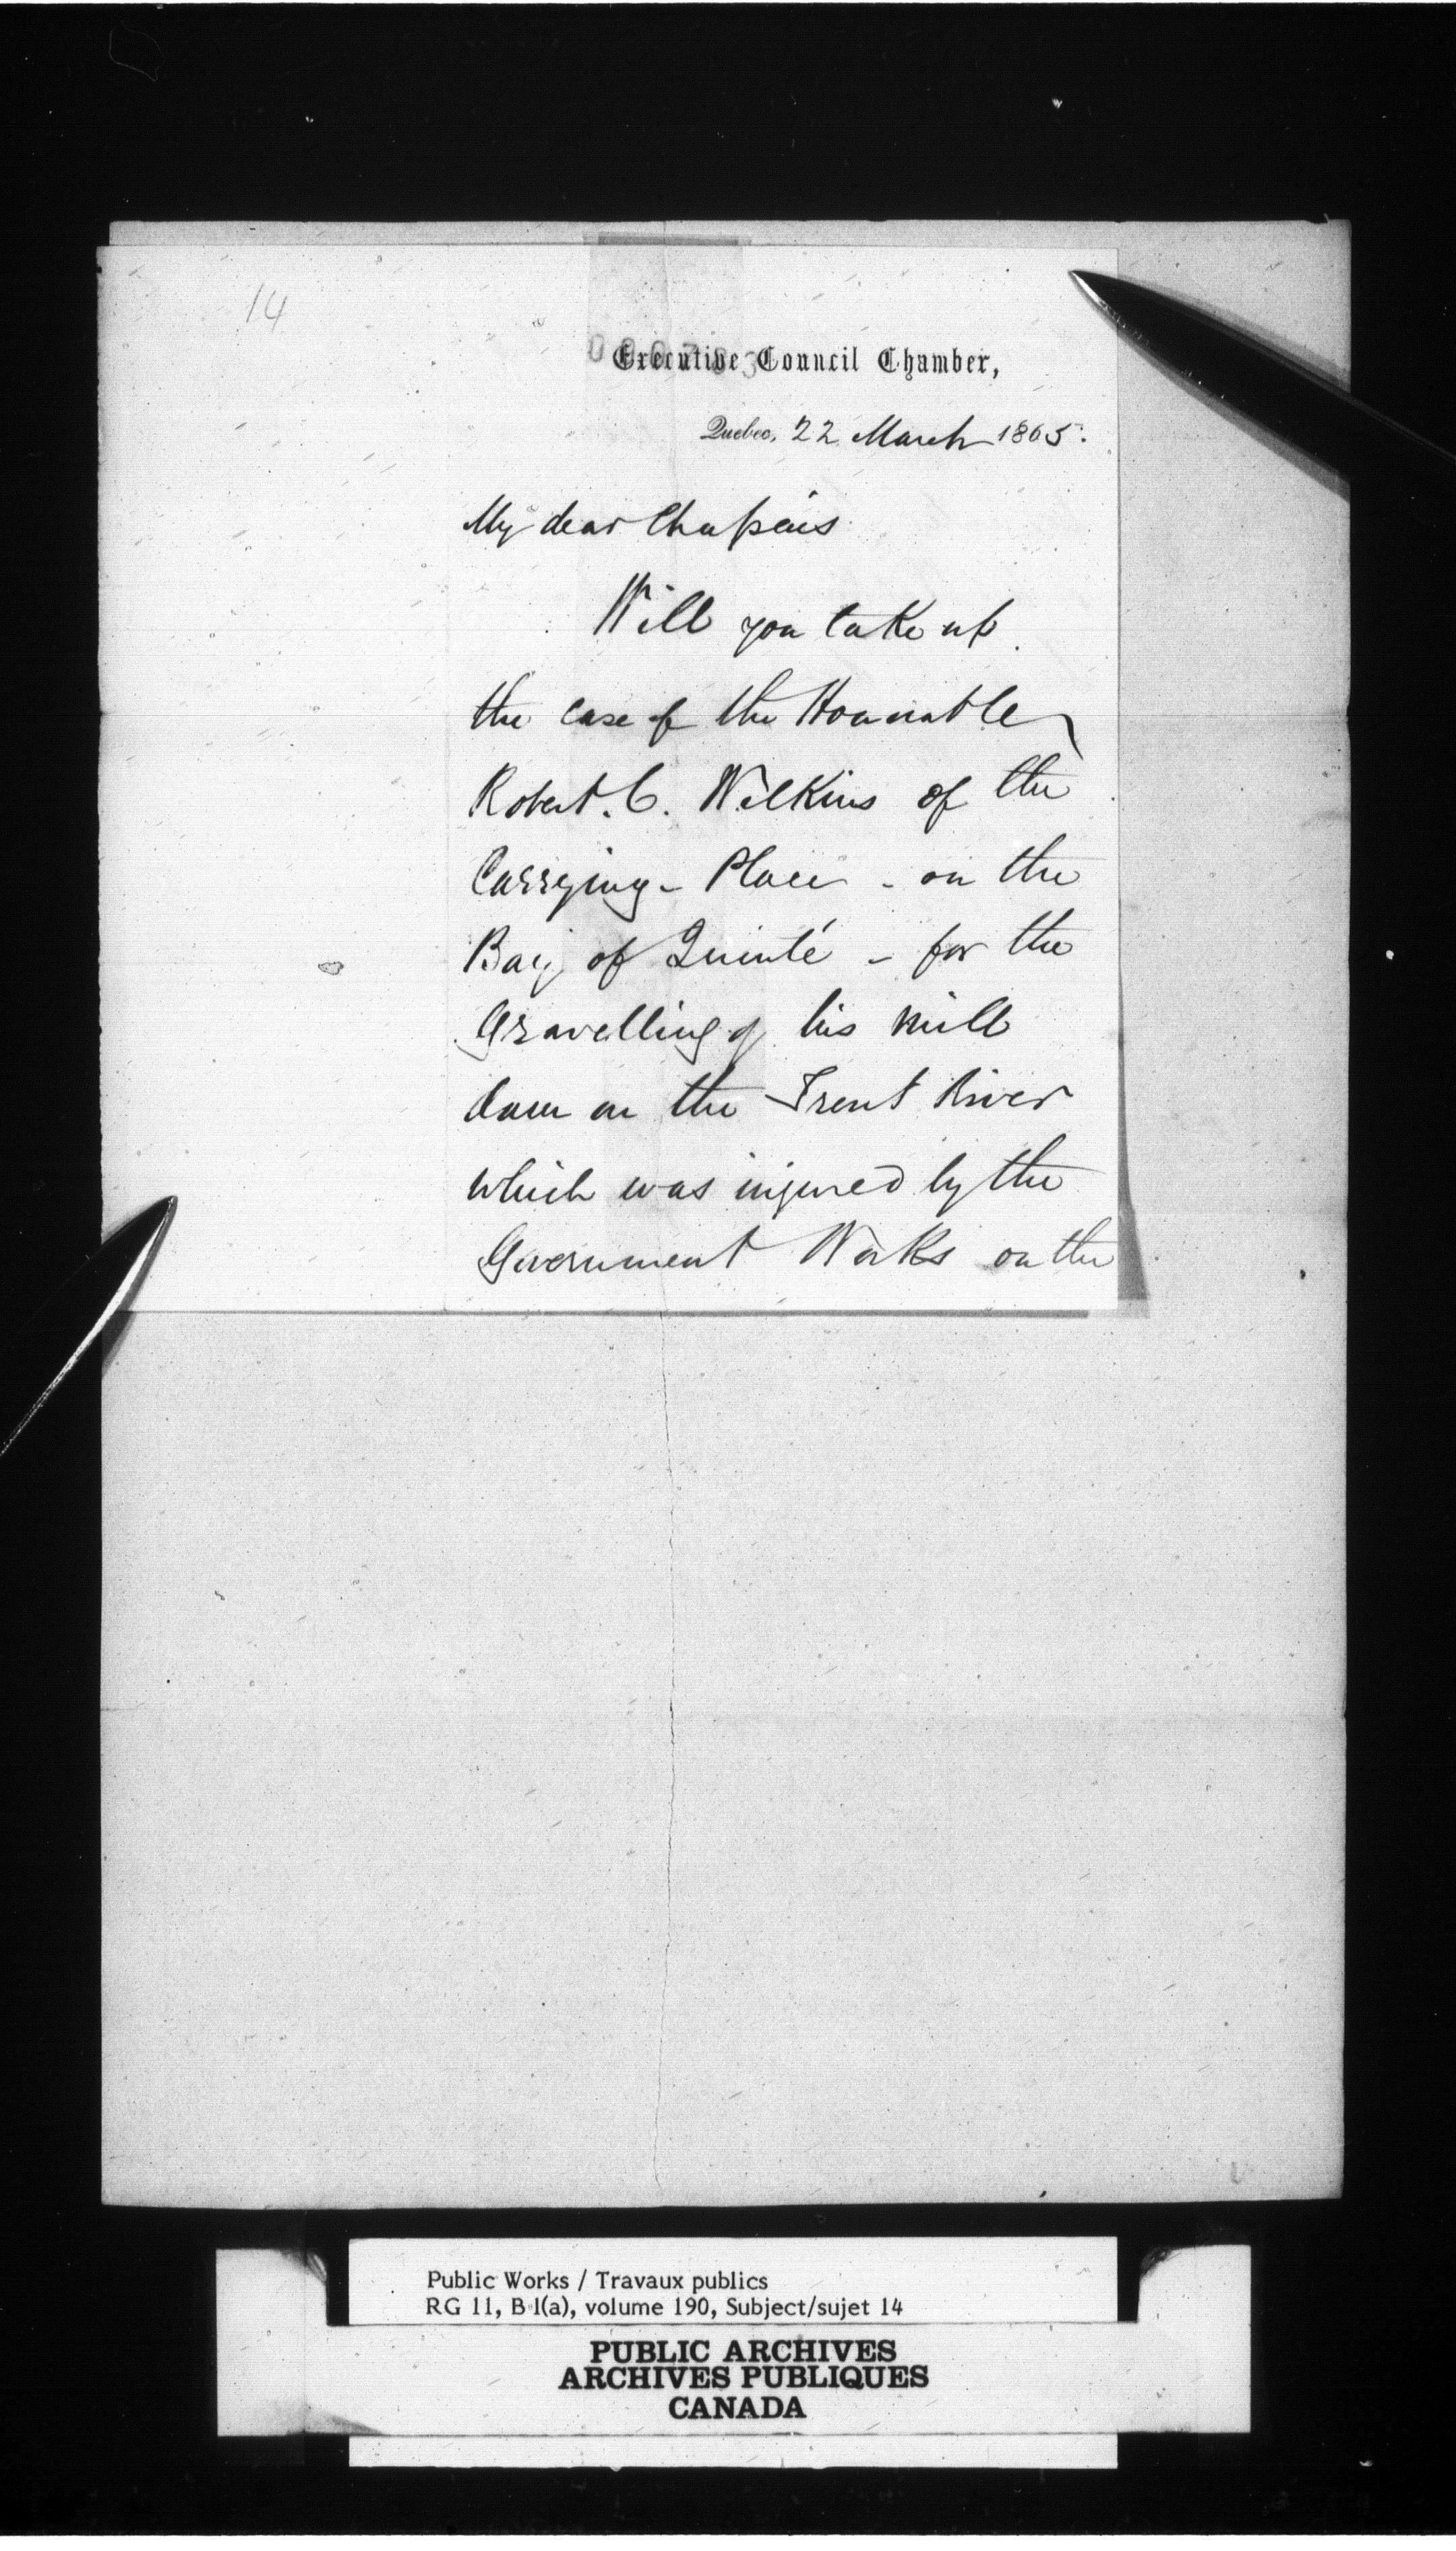 14
Executive Council Chamber,
Quebec, 22 March 1865.
My dear Chapais
Will you take up
the case of the Honorable
Robert. C. Wilkins of the
Carrying - Place - on the
Bay of Quinté - for the
Gravelling of his Mill
dam on the Trent River
which was injured by the
Government Works on the
Public Works / Travaux publics
RG 11, B 1(a), volume 190, Subject/sujet 14
PUBLIC ARCHIVES
ARCHIVES PUBLIQUES
CANADA